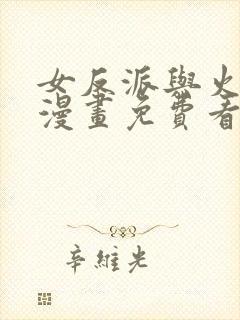 女反派與火
漫畫免費看
辛維光